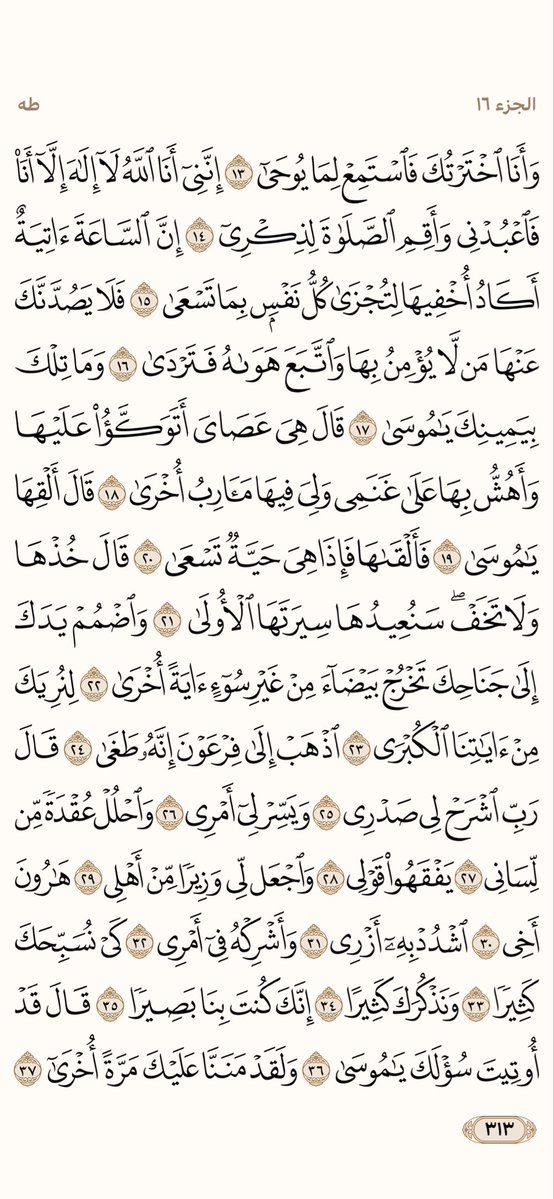 الجزء ١٦
طه
وَأَنَا ٱخْتَرْتُكَ فَٱسْتَمِعْ لِمَا يُوحَىٰٓ ١٣ إِنَّنِىٓ أَنَا ٱللَّهُ لَآ إِلَٰهَ إِلَّآ أَنَا۠
فَٱعْبُدْنِى وَأَقِمِ ٱلصَّلَوٰةَ لِذِكْرِىٓ ١٤ إِنَّ ٱلسَّاعَةَ ءَاتِيَةٌ
أَكَادُ أُخْفِيهَا لِتُجْزَىٰ كُلُّ نَفْسٍۭ بِمَا تَسْعَىٰ ١٥ فَلَا يَصُدَّنَّكَ
عَنْهَا مَن لَّا يُؤْمِنُ بِهَا وَٱتَّبَعَ هَوَىٰهُ فَتَرْدَىٰ ١٦ وَمَا تِلْكَ
بِيَمِينِكَ يَٰمُوسَىٰ ١٧ قَالَ هِىَ عَصَاىَ أَتَوَكَّؤُا۟ عَلَيْهَا
وَأَهُشُّ بِهَا عَلَىٰ غَنَمِى وَلِىَ فِيهَا مَـَٔارِبُ أُخْرَىٰ ١٨ قَالَ أَلْقِهَا
يَٰمُوسَىٰ ١٩ فَأَلْقَىٰهَا فَإِذَا هِىَ حَيَّةٌ تَسْعَىٰ ٢٠ قَالَ خُذْهَا
وَلَا تَخَفْ ۖ سَنُعِيدُهَا سِيرَتَهَا ٱلْأُولَىٰ ٢١ وَٱضْمُمْ يَدَكَ
إِلَىٰ جَنَاحِكَ تَخْرُجْ بَيْضَآءَ مِنْ غَيْرِ سُوٓءٍ ءَايَةً أُخْرَىٰ ٢٢ لِنُرِيَكَ
مِنْ ءَايَٰتِنَا ٱلْكُبْرَى ٢٣ ٱذْهَبْ إِلَىٰ فِرْعَوْنَ إِنَّهُۥ طَغَىٰ ٢٤ قَالَ
رَبِّ ٱشْرَحْ لِى صَدْرِى ٢٥ وَيَسِّرْ لِىٓ أَمْرِى ٢٦ وَٱحْلُلْ عُقْدَةً مِّن
لِّسَانِى ٢٧ يَفْقَهُوا۟ قَوْلِى ٢٨ وَٱجْعَل لِّى وَزِيرًا مِّنْ أَهْلِى ٢٩ هَٰرُونَ
أَخِى ٣٠ ٱشْدُدْ بِهِۦٓ أَزْرِى ٣١ وَأَشْرِكْهُ فِىٓ أَمْرِى ٣٢ كَىْ نُسَبِّحَكَ
كَثِيرًا ٣٣ وَنَذْكُرَكَ كَثِيرًا ٣٤ إِنَّكَ كُنتَ بِنَا بَصِيرًا ٣٥ قَالَ قَدْ
أُوتِيتَ سُؤْلَكَ يَٰمُوسَىٰ ٣٦ وَلَقَدْ مَنَنَّا عَلَيْكَ مَرَّةً أُخْرَىٰٓ ٣٧
٣١٣